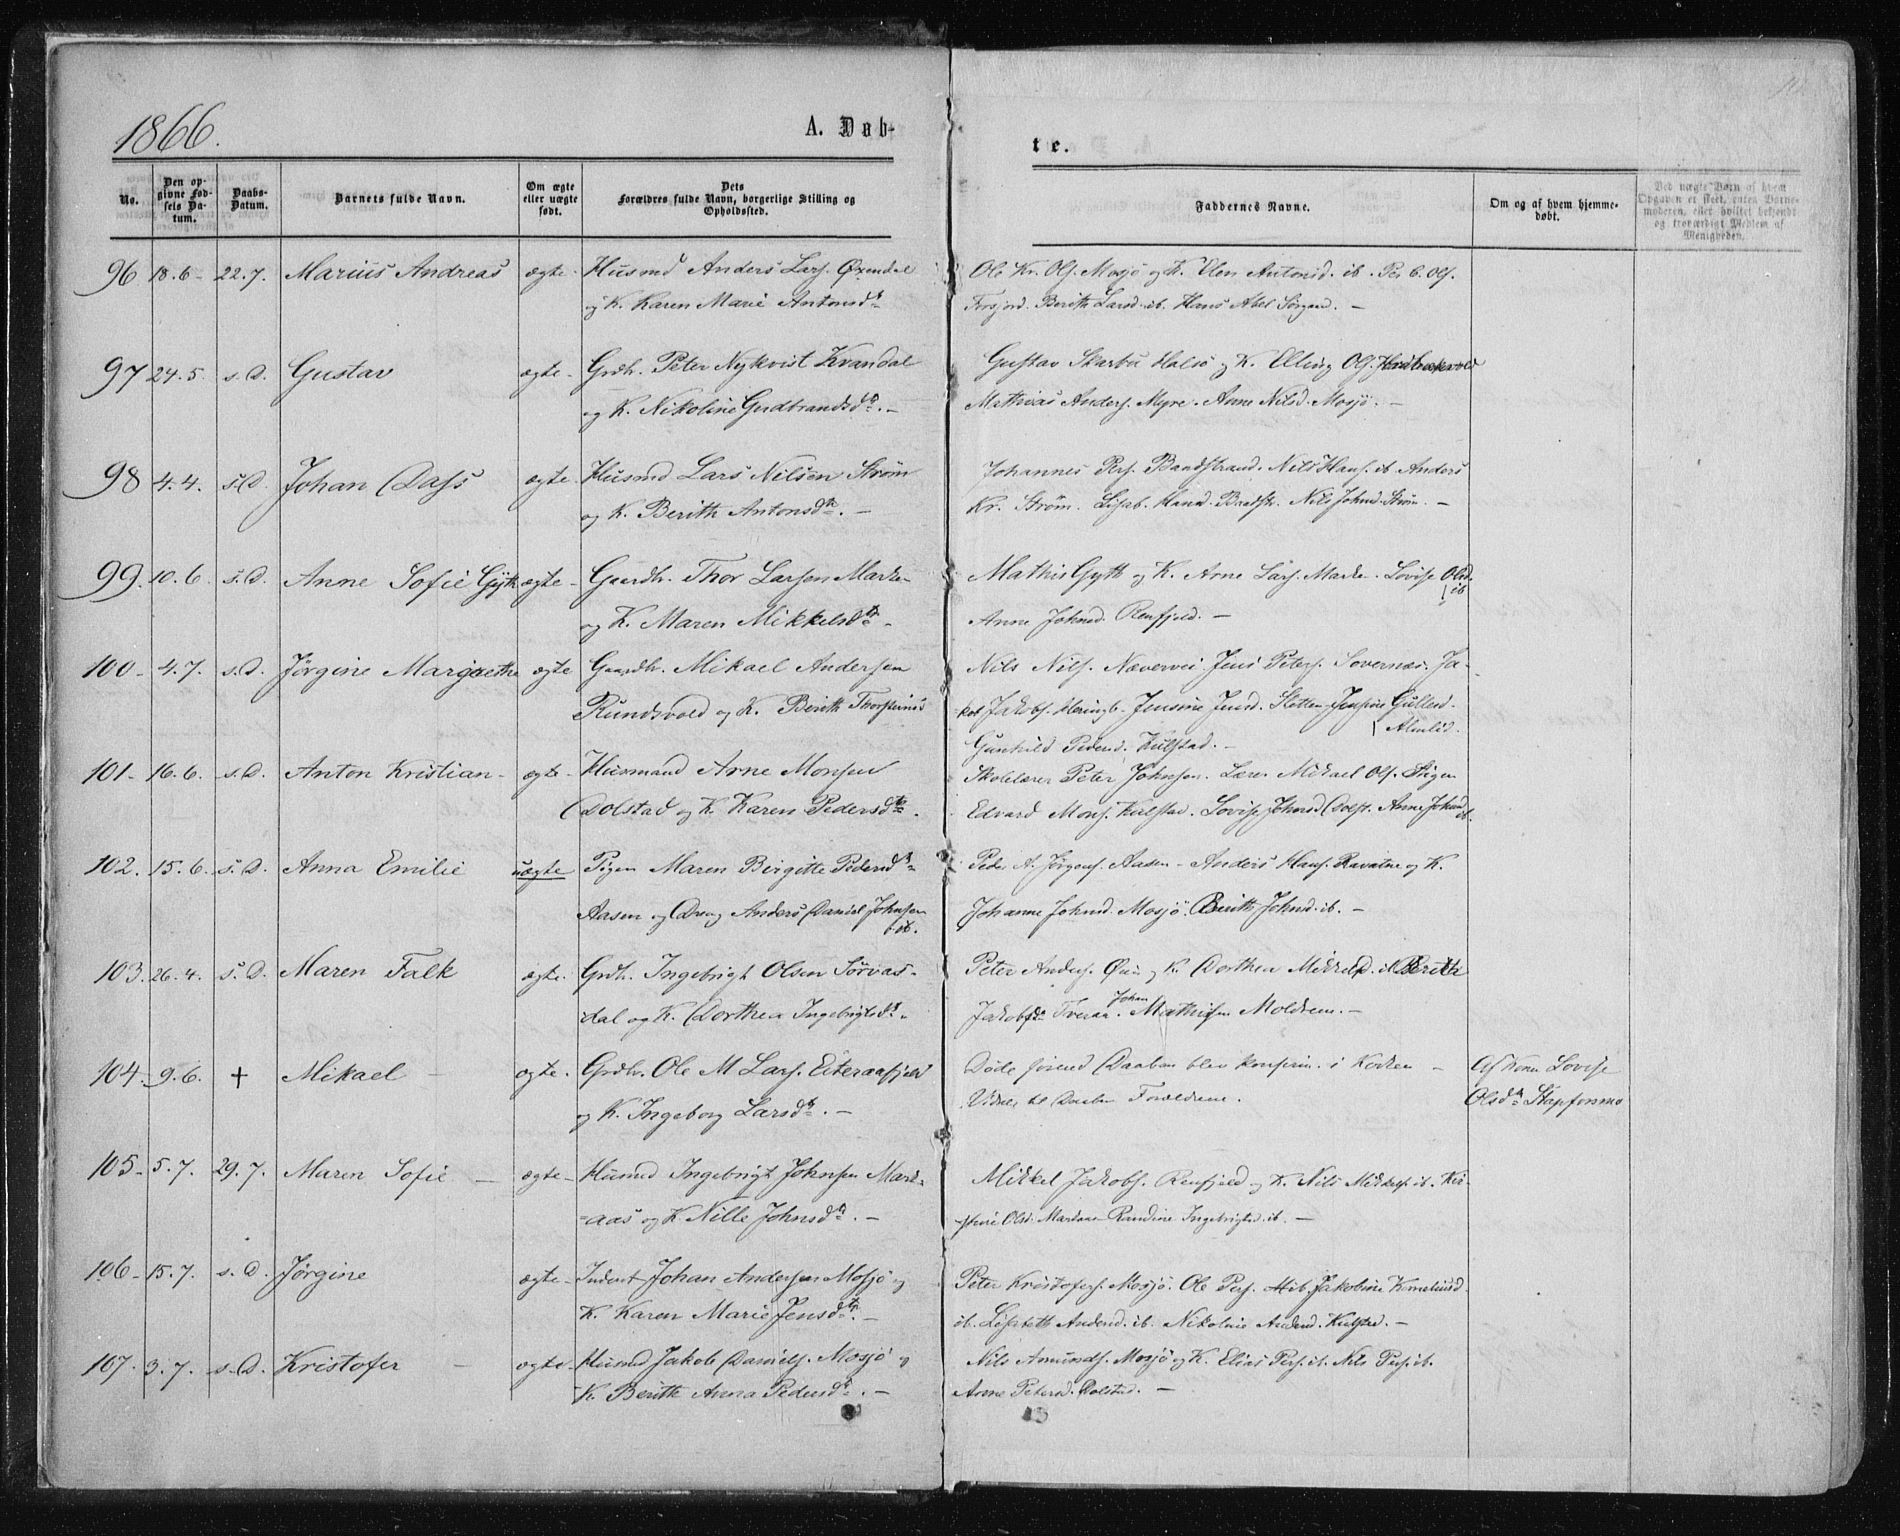 1866.
A. Døb-
te.
No.
Den opgivne Fødsels Datum.
Daabs-Datum.
Barnets fulde Navn.
Om ægte eller uægte født.
Dets Forældres fulde Navn, borgerlige Stilling og Opholdssted.
Faddernes Navne.
Om og af hvem hjemmedøbt.
Ved uægte Børn af hvem Opgaven er skeet, enten Barnemoderen, eller hvilket bekjendt og troværdigt Medlem af Menigheden.
96 18.6 22.7. Marius Andreas ægte Husmd Anders Lars. Øxendal
og K. Karen Marie Antonsdtr
Ole Kr. Ols. Mosjø og K. Elen Antonsd. ib. Per C. Ols.
Forsjord. Berith Larsd. ib. Hans Abel Sörgaard. —
97 24.5. s.D. Gustav ægte Grdb. Peter Nykvist Kvandal
og K. Nikoline Gudbrandsdtr. —
Gustav Skarbu Halsö og K. Elling Ols.
Mathias Anders. Myre. Anne Nilsd. Mosjö. —
98 4.4. s.D. Johan Dass ægte Husmd Lars Nilsen Strøm
og K. Berith Antonsdtr. —
Johannes Pers. Bandstrand. Nils Hans. ib. Anders
Kr. Strøm. Lisab. Hansd. Bandstr. Nils Johnsd. Strøm. —
99. 10.6. s.D. Anne Sofie Gyth ægte Gaardb. Thor Larsen Marken
og K. Maren Mikkelsdtr.
Mathis Gyth og K. Arne Lars. Marken. Lovise Olsd.
ib
Anne Johnsd. Renfjeld. —
100 4.7. s.D. Jørgine Margrethe ægte Gaardb. Mikael Andersen
Rundsvold og K. Berith Thorsteinsd
Nils Nils. Nævernes. Jens Peters. Sovernæs. Ja-
kob Jakobs. Heringb. Jensine Jensd. Sletten. Jensine Gullesd.
Almlid.
Gunhild Pedersd. Kulstad. —
101 16.6. s.D. Anton Kristian ægte Husmand Arne Monsen
Dolstad og K. Karen Pedersdtr.
Skolelærer Peter Johnsen. Lærer Mikael Ols. Stigen
Edvard Mons. Kulstad. Lovise Johnsd Dolst. Anne Johnsd
ib.
102. 15.6. s.D. Anna Emilie uægte Pigen Maren Birgitte Pedersdtr
Aasen og Dreng Anders Daniel Johnsen
ib.
Peder A. Jörgens. Aasen. Anders Hans. Ravatne og K.
Johanne Johnsd. Mosjö. Berith Johnsd. ib. —
103. 26.4. s.D. Maren Falk ægte. Grdb. Ingebrigt Olsen Sörvas-
dal og K. Dorthea Ingebrigtsdtr.
Peter Anders. Øien og K. Dorthea Mikkelsd. ib Berith
Jakobsdtr Tveraa. Johan Mathisen Moldrem. —
104. 9.6. + Mikael ægte. Grdbr. Ole M Lars. Eiteraafjeld
og K. Ingeborg Larsdtr. —
Døde førend Daaben blev konfirm. i Kirken
Vidner til Daaben Forældrene.
Af Kone Lovise
Olsdtr Stapfornmo
105 5.7. 29.7. Maren Sofie ægte Husmd Ingebrigt Johnsen Mark-
aas og K Nille Johnsdtr. —
Mikkel Jakobs. Renfjeld og K. Nils Mikkels. ib. Kir-
stine Olsd. Markaas Randine Ingebrigtsd. ib. —
106 15.7. s.D. Jørgine ægte Inderst Johan Andersen Mosjö og
K. Karen Marie Jensdtr. —
Peter Kristofers. Mosjö. Ole Pers. ib. Jakobine Korneliusd.
ib. Lisabeth Andersd. ib. Nikoline Andersd. Kulstad. —
107. 3.7. s.D. Kristofer ægte Husmd Jakob Daniels. Mosjö og
K. Berith Anna Pedersdtr. —
Nils Amunds. Mosjö og K. Elias Pers. ib. Nils Pers. ib.
Anne Petersd. Dolstad. —